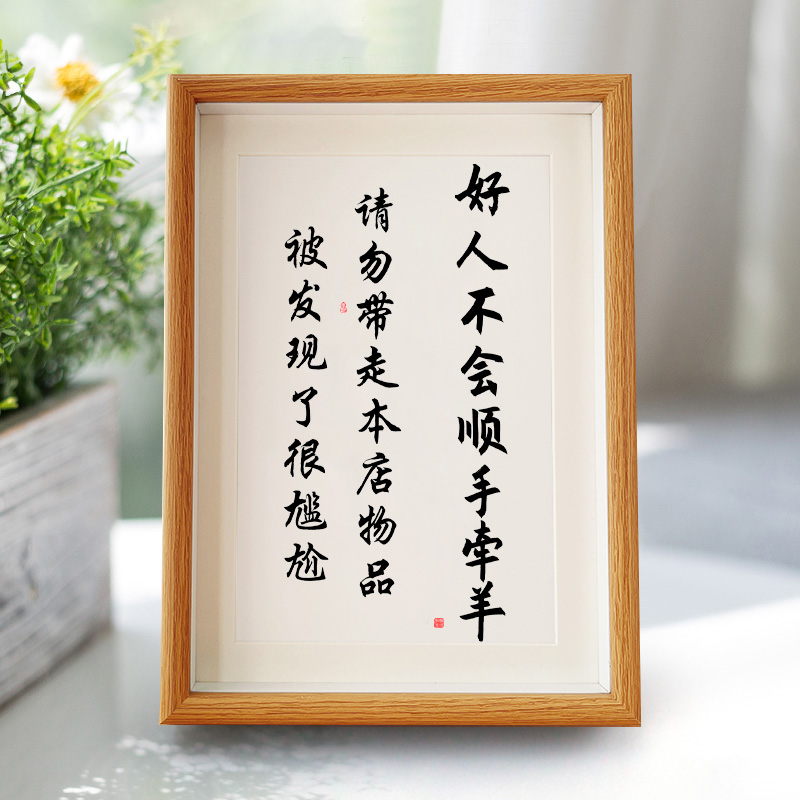 好人不会顺手牵羊
请勿带走本店物品
被发现了很尴尬